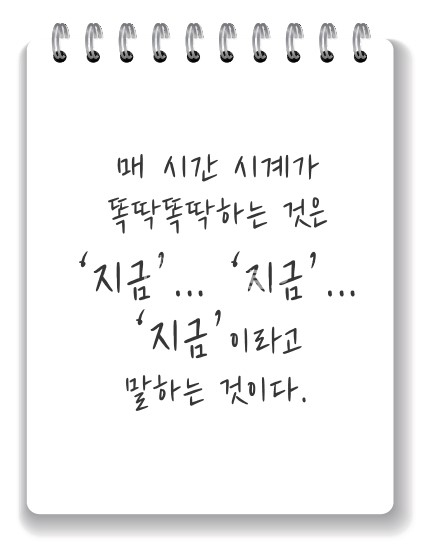 매 시간 시계가
똑딱똑딱하는 것은
‘지금’... ‘지금’...
‘지금’이라고
말하는 것이다.